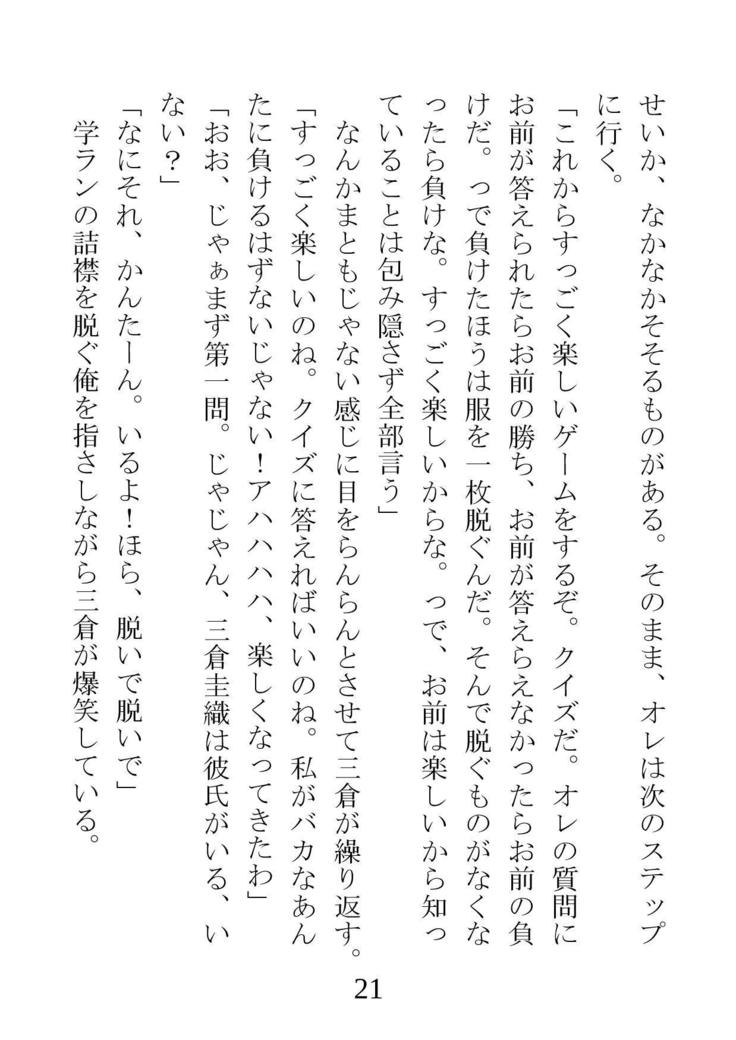 せいか、なかなかそそるものがある。そのまま、オレは次のステップ
に行く。
「これからすっごく楽しいゲームをするぞ。クイズだ。オレの質問に
お前が答えられたらお前の勝ち、お前が答えらえなかったらお前の負
けだ。っで負けたほうは服を一枚脱ぐんだ。そんで脱ぐものがなくな
ったら負けな。すっごく楽しいからな。っで、お前は楽しいから知っ
ていることは包み隠さず全部言う」
なんかまともじゃない感じに目をらんらんとさせて三倉が繰り返す。
「すっごく楽しいのね。クイズに答えればいいのね。私がバカなあん
たに負けるはずないじゃない！アハハハハ、楽しくなってきたわ」
「おお、じゃぁまず第一問。じゃじゃん、三倉圭織は彼氏がいる、い
ない？」
「なにそれ、かんたーん。いるよ！ほら、脱いで脱いで」
学ランの詰襟を脱ぐ俺を指さしながら三倉が爆笑している。
21